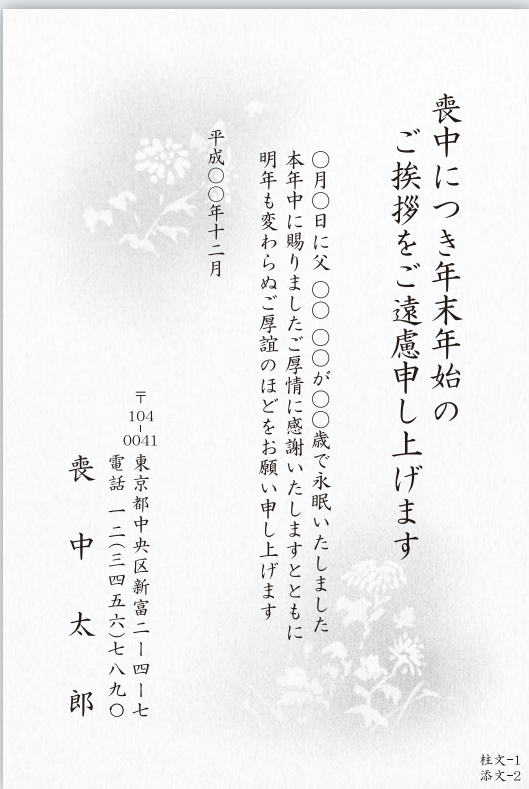 喪中につき年末年始の
ご挨拶をご遠慮申し上げます
〇月〇日に父 〇〇 〇〇が〇〇歳で永眠いたしました
本年中に賜りましたご厚情に感謝いたしますとともに
明年も変わらぬご厚誼のほどをお願い申し上げます
平成〇〇年十二月
〒104-0041
東京都中央区新富二ー四ー七
電話 一二(三四五六)七八九〇
喪中太郎
柱文-1
添文-2